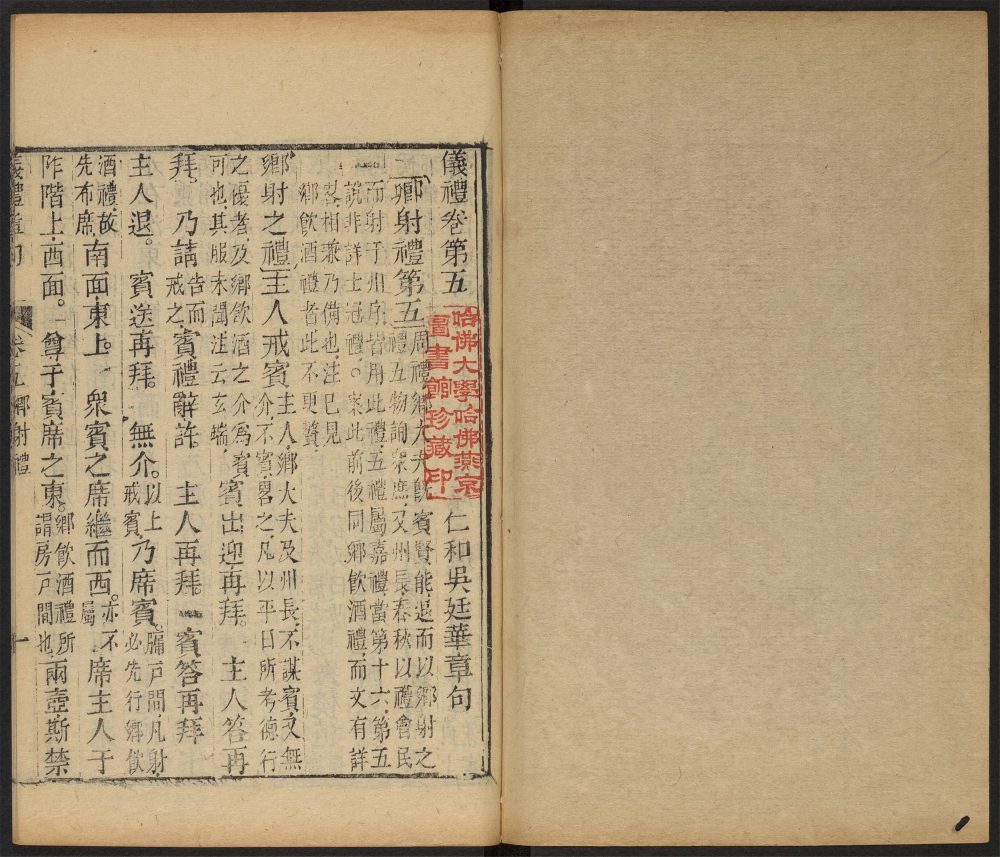 儀禮卷第五
仁和吳廷華章句
鄉射禮第五
周禮鄉大夫旣賓賢能退而以鄉射之
禮五物詢衆庶又州長春秋以禮會民
而射于州序皆用此禮五禮屬嘉禮當第十六第五
說非詳士冠禮。案此前後同鄉飲酒禮而文有詳
畧相兼乃備也注已見
鄉飲酒禮者此不更贅
鄉射之禮主人戒賓
主人鄉大夫及州長不謀賓又無
介不賓畧之凡以平日所考德行
之優者及鄉飲酒之介爲賓
可也其服未聞注云玄端
賓出迎再拜。主人答再
拜。乃請
告而
戒之
賓禮辭許。主人再拜。賓答再拜
主人退。賓送再拜。無介。
以上
戒賓
乃席賓。
牖戶間凡射
必先行鄉飲
酒禮故
先布席
南面東上。衆賓之席繼而西。
亦不
屬
席主人于
阼階上西面。尊于賓席之東。
鄉飲酒禮所
謂房戶間也
兩壺斯禁
儀禮章句
卷五鄉射禮
一
哈佛大學哈佛燕京
圖書館珍藏印